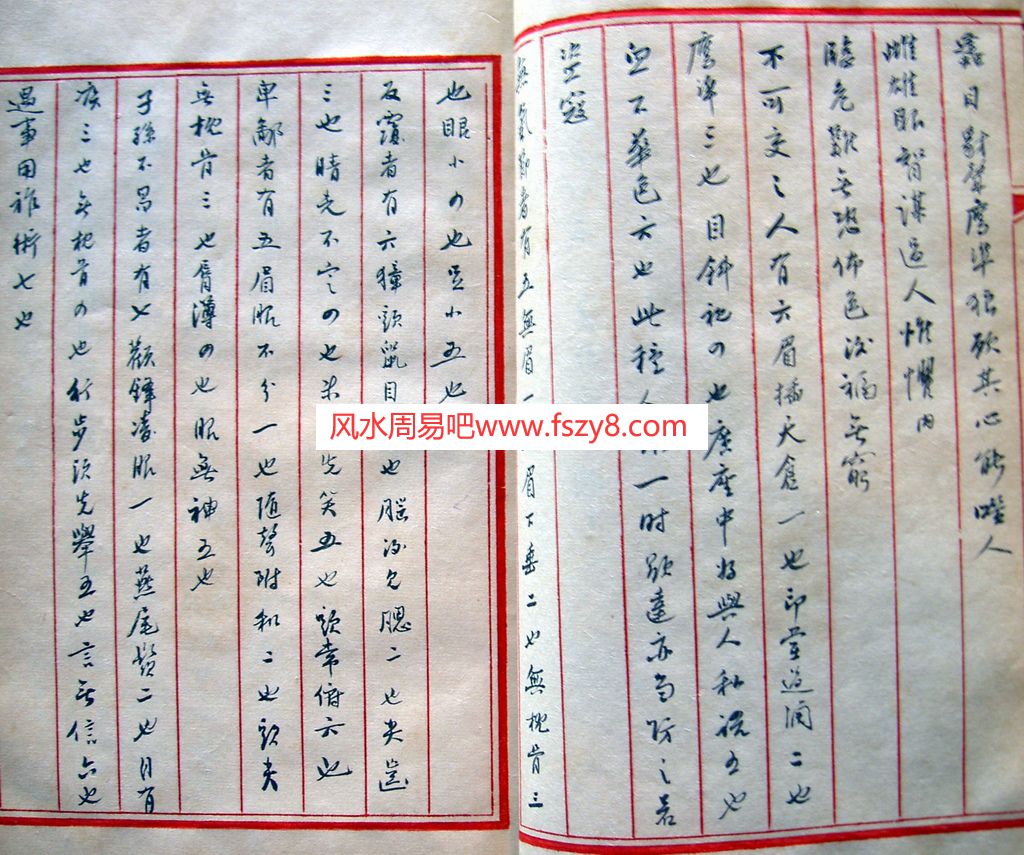 蜂目豺聲鷹準狼欲其心能噬人
雌雄眼智謀過人惟懼內
臨危難無恐怖色後福無窮
不可交之人有六眉插天倉一也印堂過潤二也
鷹準三也目斜視の也廣座中好與人私說五也
血不華色六也此種人一时顯達亦当防之若
盜寇
無氣節者有五無眉一眉下垂二也無枕骨三
也眼小の也足小五也
反覆者有六獐頭鼠目也腦後見腮二也尖齒
三也睛光不定の也先笑五也頭常俯六也
卑鄙者有五眉眼不分一也随聲附和二也頭尖
無枕骨三也唇薄の也眼無神五也
子孫不昌者有七顴鋒凌眼一也燕尾鬚二也目有
疾三也無枕骨の也行步頭先舉五也言無信六也
遇事用雜術七也
风水周易吧www.fszy8.com